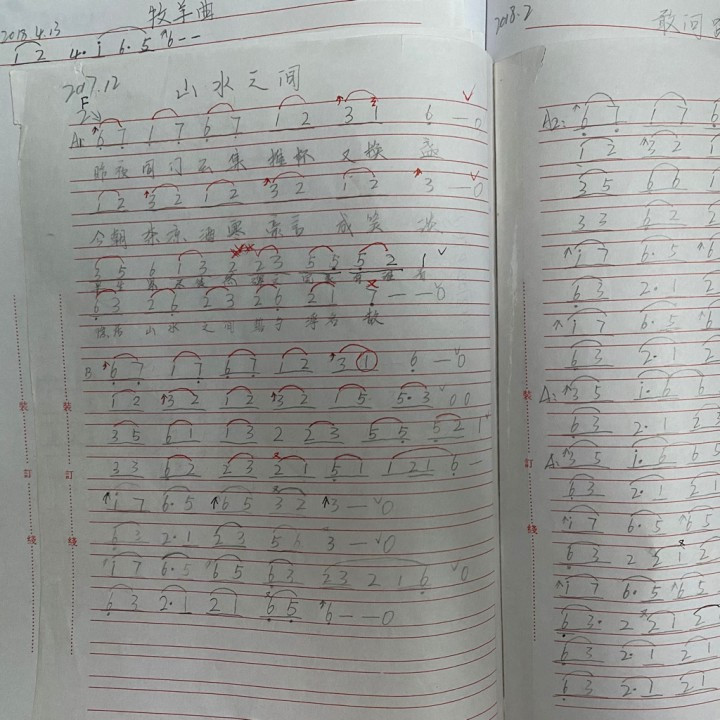 2018.4.13 牧羊曲
1 2 4· i 6·5 6 - -
2017.12 山水之间
F
2
A1 6 7 1 7 6 7 1 2 3 1 6 - 0
昨夜闭门 云集 推杯 又换 盏
1 2 3 2 1 2 3 2 1 2 3 - 0
今朝 茶凉 酒寒 豪言 成笑 谈
3 5 6 1 3 2 2 3 5 5 5 2 1
6 3 2 6 2 3 2 6 2 1 7 - - 0
山水 之间 浮名 散
B 6 7 1 7 6 7 1 2 3 1 6 - 0
1 2 3 2 1 2 3 2 1 5 5·3 0 0
3 5 6 1 1 3 2 2 3 5 5 5 2 1
3 3 6 2 2 3 2 1 5 1 1 2 1 6 -
i 7 6·5 6 5 3 2 3 - 0
6 3 2·1 2 3 5 6 3 - 0
i 7 6·5 6 5 6 3 2 3 2 1 6 0
6 3 2·1 2 1 6 5 6 - - 0
装
订
线
装
订
线
2018.2 敢问
A2: 6 7 1 7 6
1 2 3 2 1
3 5 6 6 1
3 3 6 2 2
i 7 6·5 6
6 3 2·1 2
i 7 6·5 6
6 3 2·1 2
A: 3 5 i·6 6
6 3 2·1 2 3
A: 3 5 i·6 6 5
6 3 2·1 2 1
i 7 6·5 6 5
6 3 2 2 1 2
i 7 6·5 6 5
6 3· 2 2 1 2
6 3 2·1 2 1
6 3 2·1 2 1
装
订
线